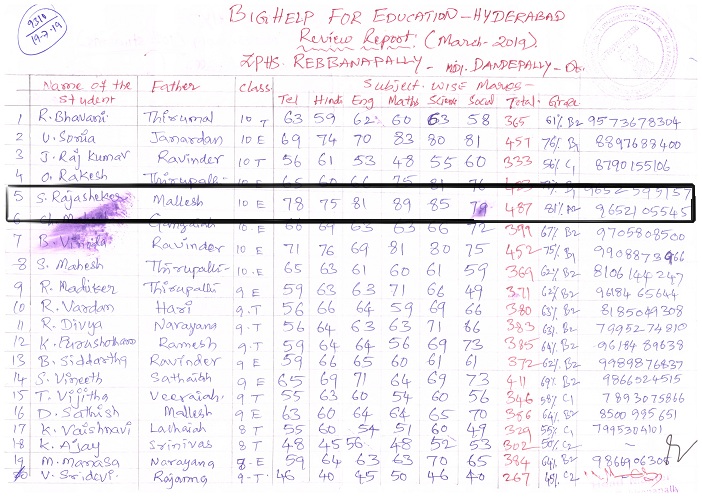 9310
19-7-19
BIGHELP FOR EDUCATION - HYDERABAD
Review Report. (March-2019).
ZPHS. REBBANAPALLY - DANDEPALLY -
Subject wise Marks -
Name of the Student Father class Tel Hindi Eng Maths Science Social Total Grade
1 R. Bhavani Thirumal 10 T 63 59 62 60 63 58 365 61% B2 9573678304
2 V. Sonia Janardan 10 E 69 74 70 83 80 81 457 76% B1 8897688400
3 J. Raj Kumar Ravinder 10 T 56 61 53 48 55 60 333 56% C1 8790155106
4 O. Rakesh Thirupathi 10 E 75 81 76 9652595157
5 S. Rajashekar Mallesh 10 E 78 75 81 89 85 79 487 81% A2 9652105545
6 Gangaiah 10 E 68 69 63 63 66 72 399 67% B2 9705808500
7 B. Ravinder 10 E 71 76 69 81 80 75 452 75% B1 9908873966
8 S. Mahesh Thirupathi- 10 E 65 63 61 60 61 59 369 62% B2 8106144247
9 R. Thirupathi 9 E 59 63 63 71 66 49 371 62% B2 9618465644
10 R. Vardan Hari 9 T 56 66 64 59 69 66 380 63% B2 8185049308
11 R. Divya Narayana 9 T 56 64 63 63 71 86 383 63% B2 7995274810
12 K. Purushotham Ramesh 9 T 59 64 64 56 69 73 385 64% B2 9618489638
13 B. Siddartha Ravinder 9 E 59 66 65 60 61 61 372 62% B2 9989876837
14 S. Vineeth Sathaiah 9 E 65 69 71 64 69 73 411 69% B2 9866024515
15 T. Vijitha Veeraiah 9 T 55 63 60 54 60 56 346 58% C1 7893075866
16 D. Sathish Mallesh 9 E 63 60 64 64 65 70 386 64% B2 8500995651
17 K. Vaishnavi Lachaiah 8 T 55 60 54 51 60 49 329 55% C1 7995304101
18 K. Ajay Srinivas 8 T 48 45 56 48 52 53 302 50% C2 -
19 M. Manasa Narayana 8 E 59 64 63 63 70 65 384 64% B2 9866906308
20 V. Sridevi. Rajanna 9 T 46 40 45 50 46 40 267 45% C2